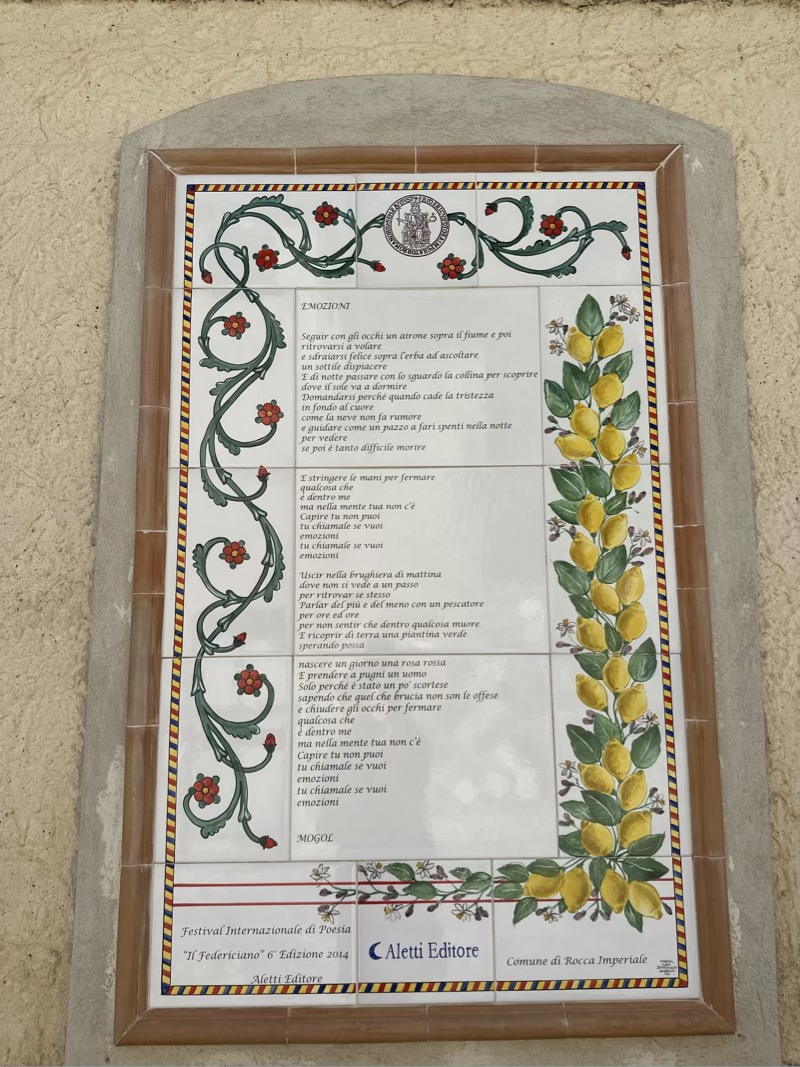 EMOZIONI
Seguir con gli occhi un airone sopra il fiume e poi
ritrovarsi a volare
e sdraiarsi felice sopra l'erba ad ascoltare
un sottile dispiacere
E di notte passare con lo sguardo la collina per scoprire
dove il sole va a dormire
Domandarsi perché quando cade la tristezza
in fondo al cuore
come la neve non fa rumore
e guidare come un pazzo a fari spenti nella notte
per vedere
se poi é tanto difficile morire
E stringere le mani per fermare
qualcosa che
é dentro me
ma nella mente tua non c'é
Capire tu non puoi
tu chiamale se vuoi
emozioni
tu chiamale se vuoi
emozioni
Uscir nella brughiera di mattina
dove non si vede a un passo
per ritrovar se stesso
Parlar del più e del meno con un pescatore
per ore ed ore
per non sentir che dentro qualcosa muore
E ricoprir di terra una piantina verde
sperando possa
nascere un giorno una rosa rossa
E prendere a pugni un uomo
Solo perché é stato un po' scortese
sapendo che quel che brucia non son le offese
e chiudere gli occhi per fermare
qualcosa che
é dentro me
ma nella mente tua non c'é
Capire tu non puoi
tu chiamale se vuoi
emozioni
tu chiamale se vuoi
emozioni
MOGOL
Festival Internazionale di Poesia
"Il Federiciano" 6° Edizione 2014
Aletti Editore
Aletti Editore
Comune di Rocca Imperiale